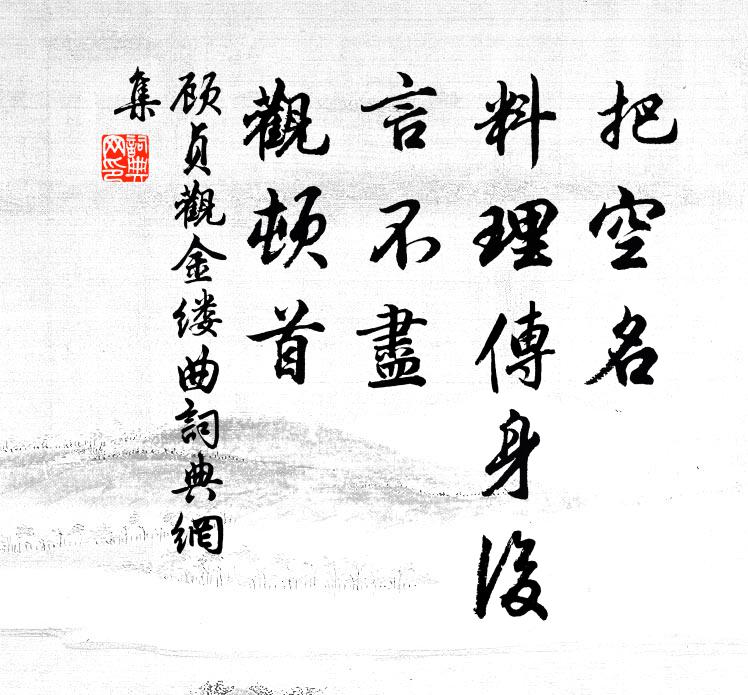 把空名
料理傳身後
言不盡
觀頓首
顾貞觀金缕曲詞典網
集
詞典網印